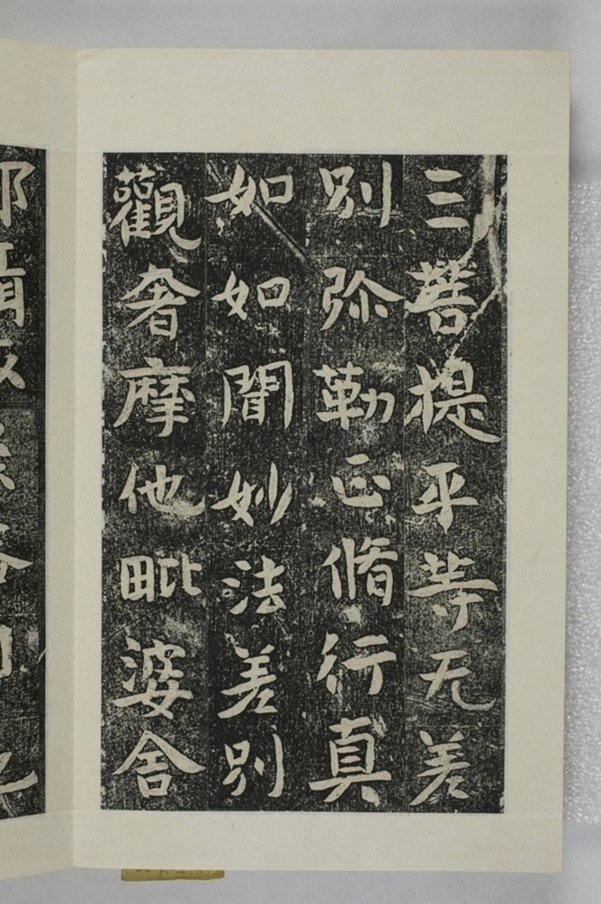 三菩提平等无差
别弥勒正脩行真
如如聞妙法差别
觀奢摩他毗婆舍